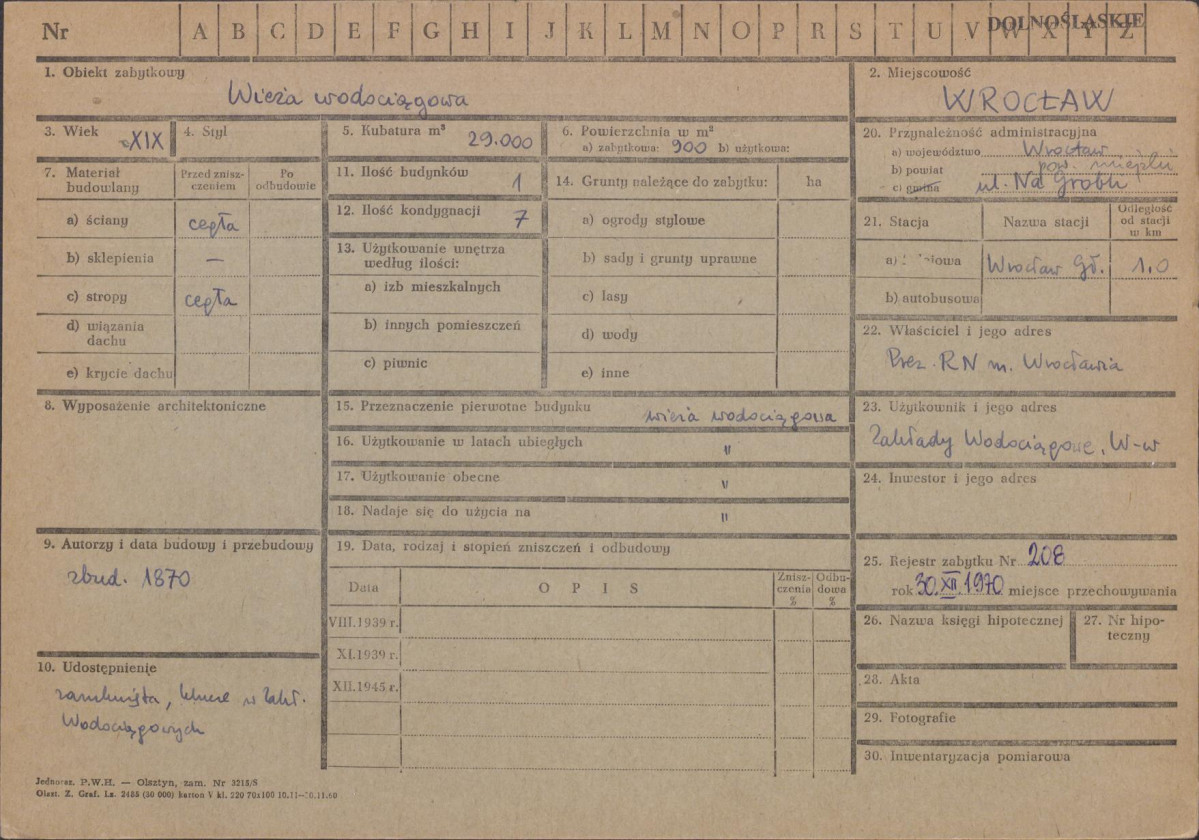 Nr A B C D E F G H I J K L M N O P R S T U V W X Y Z
DOLNOŚLĄSKIE
1. Obiekt zabytkowy
Wieża wodociągowa
2. Miejscowość
WROCŁAW
3. Wiek XIX
4. Styl
5. Kubatura m³ 29.000
6. Powierzchnia w m²
a) zabytkowa: 900 b) użytkowa:
20. Przynależność administracyjna
a) województwo Wrocław
b) powiat pow. miejski
c) gmina ul. Na Grobli
7. Materiał budowlany
Przed zniszczeniem
Po odbudowie
a) ściany cegła
b) sklepienia —
c) stropy cegła
d) wiązania dachu
e) krycie dachu
11. Ilość budynków 1
12. Ilość kondygnacji 7
13. Użytkowanie wnętrza
według ilości:
a) izb mieszkalnych
b) innych pomieszczeń
c) piwnic
14. Grunty należące do zabytku: ha
a) ogrody stylowe
b) sady i grunty uprawne
c) lasy
d) wody
e) inne
21. Stacja
Nazwa stacji
Odległość
od stacji
w km
a) Wrocław Gł. 1.0
b) autobusowa
22. Właściciel i jego adres
Prez. RN m. Wrocławia
8. Wyposażenie architektoniczne
15. Przeznaczenie pierwotne budynku wieża wodociągowa
16. Użytkowanie w latach ubiegłych "
17. Użytkowanie obecne "
18. Nadaje się do użycia na "
23. Użytkownik i jego adres
Zakłady Wodociągowe, W-w
24. Inwestor i jego adres
9. Autorzy i data budowy i przebudowy
zbud. 1870
19. Data, rodzaj i stopień zniszczeń i odbudowy
Data
O P I S
Znisz-
czenia
%
Odbu-
dowa
%
VIII.1939 r.
XI.1939 r.
XII.1945 r.
25. Rejestr zabytku Nr 208
rok 30.XII.1970 miejsce przechowywania
26. Nazwa księgi hipotecznej
27. Nr hipo-
teczny
10. Udostępnienie
zamknięta, klucze w Zakł.
Wodociągowych
28. Akta
29. Fotografie
30. Inwentaryzacja pomiarowa
Jednoraz. P.W.H. — Olsztyn, zam. Nr 3218/S
Olszt. Z. Graf. Lz. 2485 (30 000) karton V kl. 220 70x100